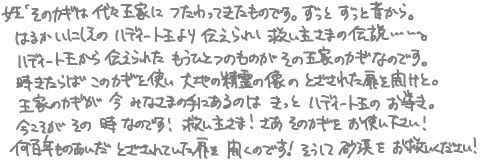 姫「そのカギは 代々王家に つたわってきたものです。ずっと ずっと昔から。
はるかいにしえの ハディート王より 伝えられし 救い主さまの伝説……。
ハディート王から 伝えられた もうひとつのものが その王家のカギなのです。
時きたらば このカギを使い 大地の精霊の像の とざされた扉を開けと。
王家のカギが 今 みなさまの手にあるのは きっと ハディート王の お導き。
今こそが その 時なのです! 救い主さま! さあ そのカギを お使い下さい!
何百年ものあいだ とざされていた扉を 開くのです! そうして 砂漠を お救いください!